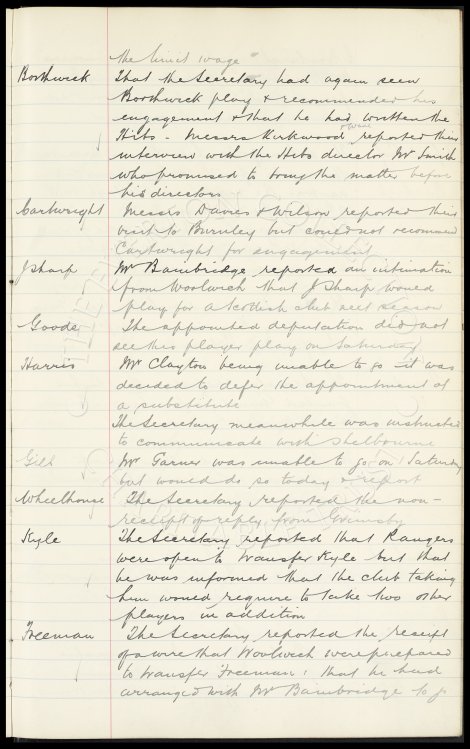 the limit wage"
Borthwick That the Secretary had again seen
Borthwick play & recommended his
engagement & that he had written the
Hibs - Messrs Kirkwood reported their
interview with the Hibs director Mr Smith
who promised to bring the matter before
his directors
Cartwright Messrs Davies & Wilson reported their
visit to Burnley but could not recommend
Cartwright for engagement
J Sharp Mr Bainbridge reported an intimation
from Woolwich that J Sharp would
play for a Scottish club next season
Goode The appointed deputation did not
see this player play on Saturday
Harris Mr Clayton being unable to go it was
decided to defer the appointment of
a substitute
The Secretary meanwhile was instructed
to communicate with Shelbourne
Gill Mr Garner was unable to go on Saturday
but would do so today & report
Wheelhouse The Secretary reported the non-
receipt of reply from Grimsby
Kyle The Secretary reported that Rangers
were open to transfer Kyle but that
he was informed that the club taking
him would require to take two other
players in addition
Freeman The Secretary reported the receipt
of a wire that Woolwich were prepared
to transfer Freeman: that he had
arranged with Mr Bainbridge to go